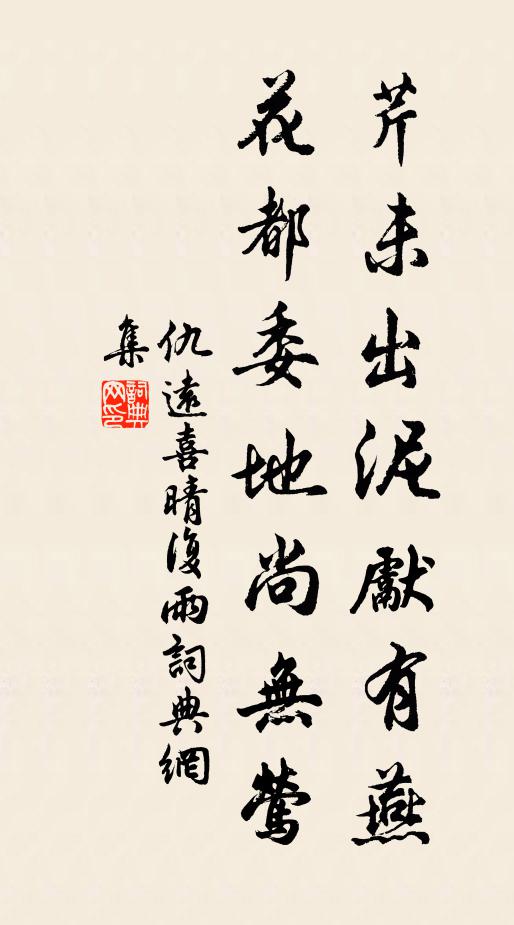 芹未出泥獻有燕
花都委地尚無鶯
仇遠喜晴復雨詞典網
集
詞典
网印